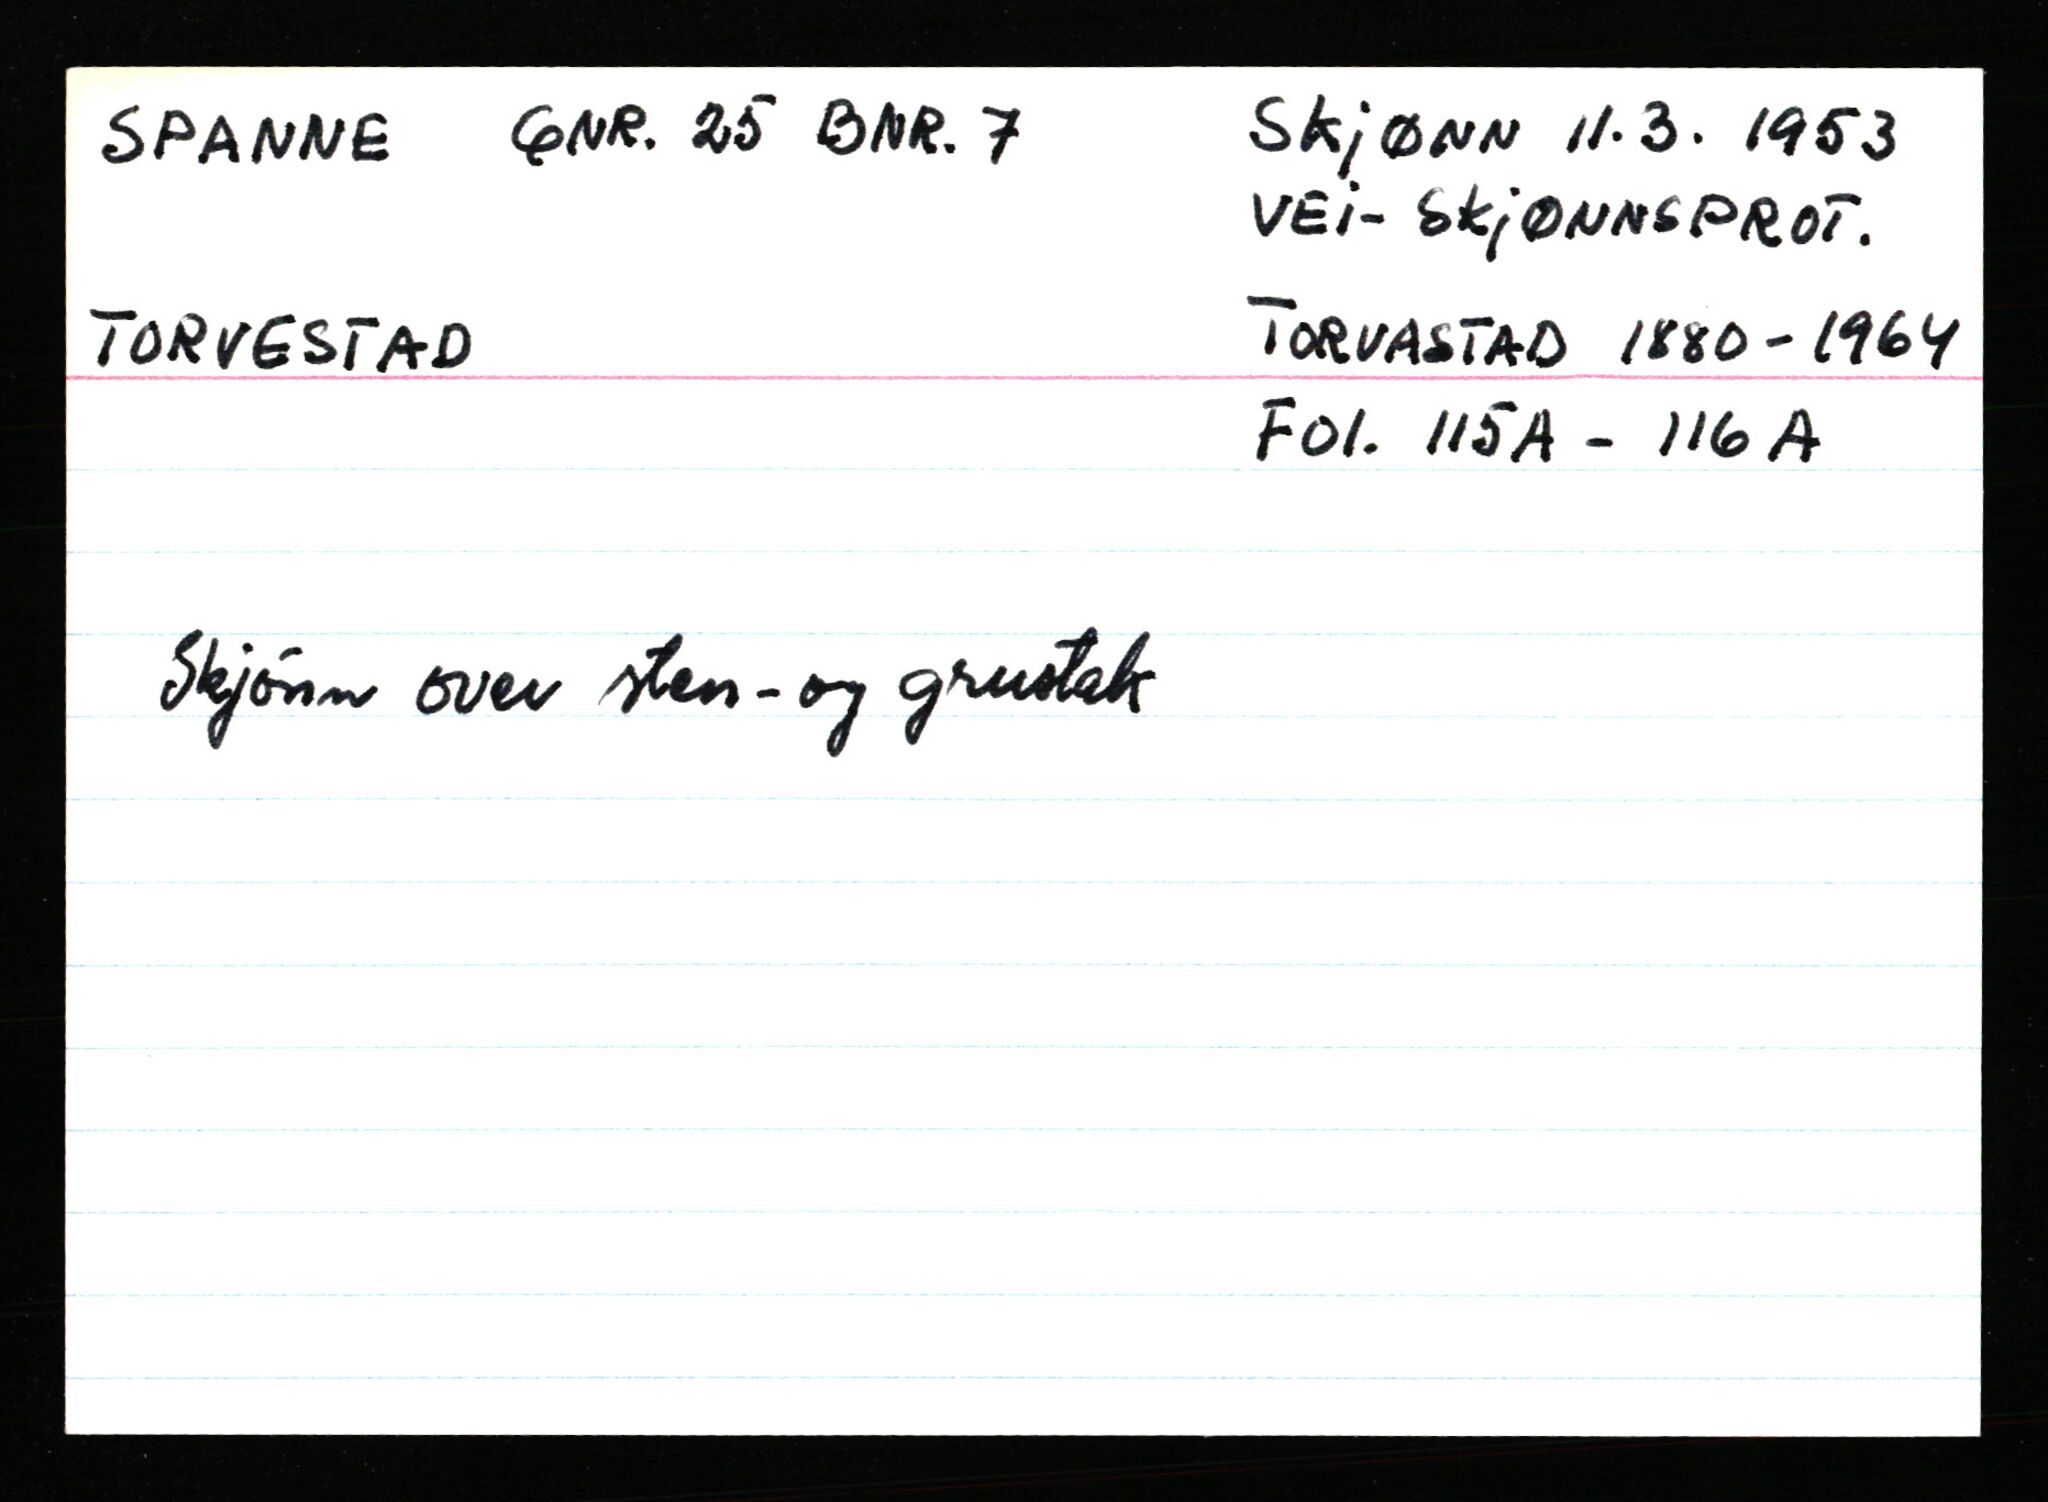 SPANNE GNR. 25 BNR. 7
SkjØNN 11.3. 1953
VEi- SkjØNNSPROT.
TORVESTAD
TORVASTAD 1880-1964
Fol. 115A - 116A
Skjønn over sten- og grustak